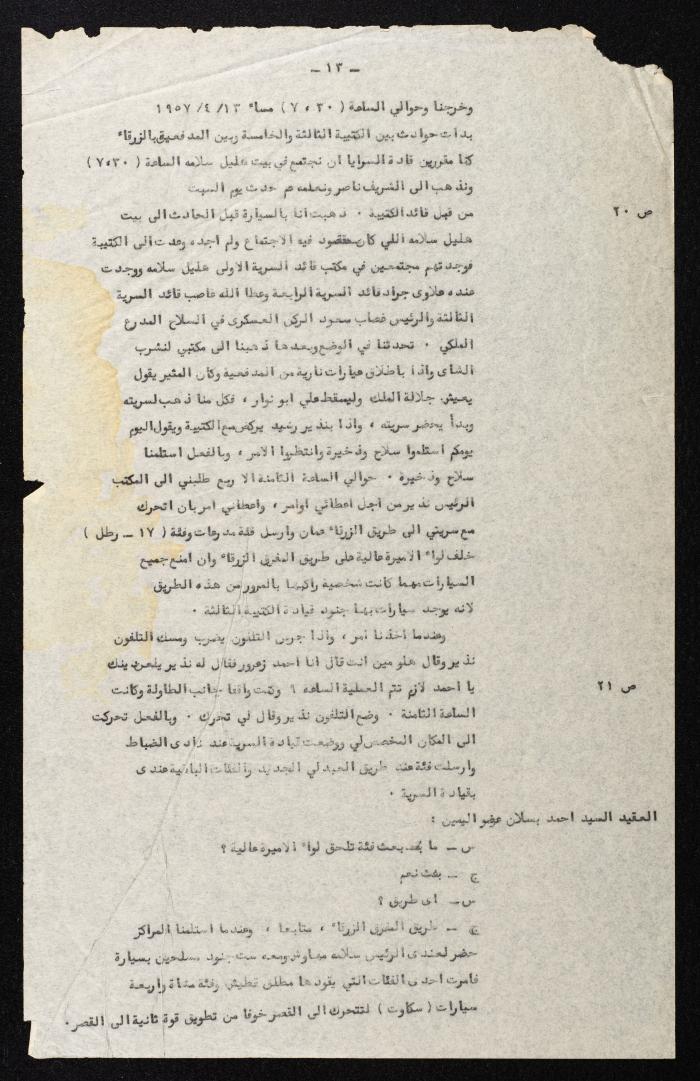 – ١٣ –
وخرجنا وحوالي الساعة ( ٣٠ ، ٧ ) مساء ١٣/ ٤/ ١٩٥٧
بدأت حوادث بين الكتيبة الثالثة والخامسة وبين المدفعية بالزرقاء
كنا مقررين قادة السرايا ان نجتمع في بيت هليل سلامه الساعة ( ٧،٣٠ )
ونذهب الى الشريف ناصر ونعلمه عم حدث يوم السبت
ص ٢٠
من قبل قائد الكتيبة ٠ ذهبت انا بالسيارة قبل الحادث الى بيت
هليل سلامه اللي كان مقصود فيه الاجتماع ولم اجده وعدت الى الكتيبة
فوجدتهم مجتمعين في مكتب قائد السرية الاولى هليل سلامه ووجدت
عنده علاوى جراد قائد السرية الرابعة وعطا الله غاصب قائد السرية
الثالثة والرئيس غصاب سعود الركن العسكرى في السلاح المدرع
الملكي ٠ تحدثنا في الوضع وبعدها ذهبنا الى مكتبي لنشرب
الشاى واذا باطلاق عيارات نارية من المدفعية وكان المثير يقول
يعيش جلالة الملك وليسقط علي ابو نوار ، فكل منا ذهب لسريته
وبدأ يحضر سريته ، واذا بنذير رشيد يركض مع الكتيبة ويقول اليوم
يومكم استلموا سلاح وذخيرة وانتظروا الامر ، وبالفعل استلمنا
سلاح وذخيرة ٠ حوالي الساعة الثامنة الا ربع طلبني الى المكتب
الرئيس نذير من اجل اعطائي اوامر ، واعطاني امر بان اتحرك
مع سريتي الى طريق الزرقاء عمان وارسل فئة مدرعات وفئة ( ١٧ – رطل )
خلف لواء الاميرة عالية على طريق المفرق الزرقاء وان امنع جميع
السيارات مهما كانت شخصية راكبها بالمرور من هذه الطريق
لانه يوجد سيارات بها جنود قيادة الكتيبة الثالثة ٠
وعندما اخذنا امر ، واذا جرس التلفون يضرب ومسك التلفون
نذير وقال هلو مين انت قال انا احمد زعرور فقال له نذير يلعن دينك
ص ٢١
يا احمد لازم تتم العملية الساعه ٩ وكنت واقفا جانب الطاولة وكانت
الساعة الثامنة ٠ وضع التلفون نذير وقال لي تحرك ٠ وبالفعل تحركت
الى المكان المخصص لي ووضعت قيادة السرية عند نادى الضباط
وارسلت فئة عند طريق العبدلي الجديد والفئات الباقية عندى
بقيادة السرية ٠
العقيد السيد احمد بسلان عضو اليمين :
س – ما بعثت فئة تلحق لواء الاميرة عالية ؟
ج – بعثت نعم
س – اى طريق ؟
ج – طريق المفرق الزرقاء ، متابعا ، وعندما استلمنا المراكز
حضر لعندى الرئيس سلامه معاوش ومعه ست جنود مسلحين بسيارة
فامرت احدى الفئات التي يقودها مطلق تطيش وفئة مشاة واربعة
سيارات ( سكاوت ) لتتحرك الى القصر خوفا من تطويق قوة ثانية الى القصر ٠